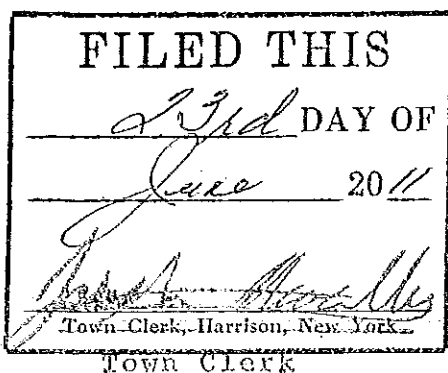 FILED THIS
23rd DAY OF
June 2011
Town Clerk, Harrison, New York
Town Clerk